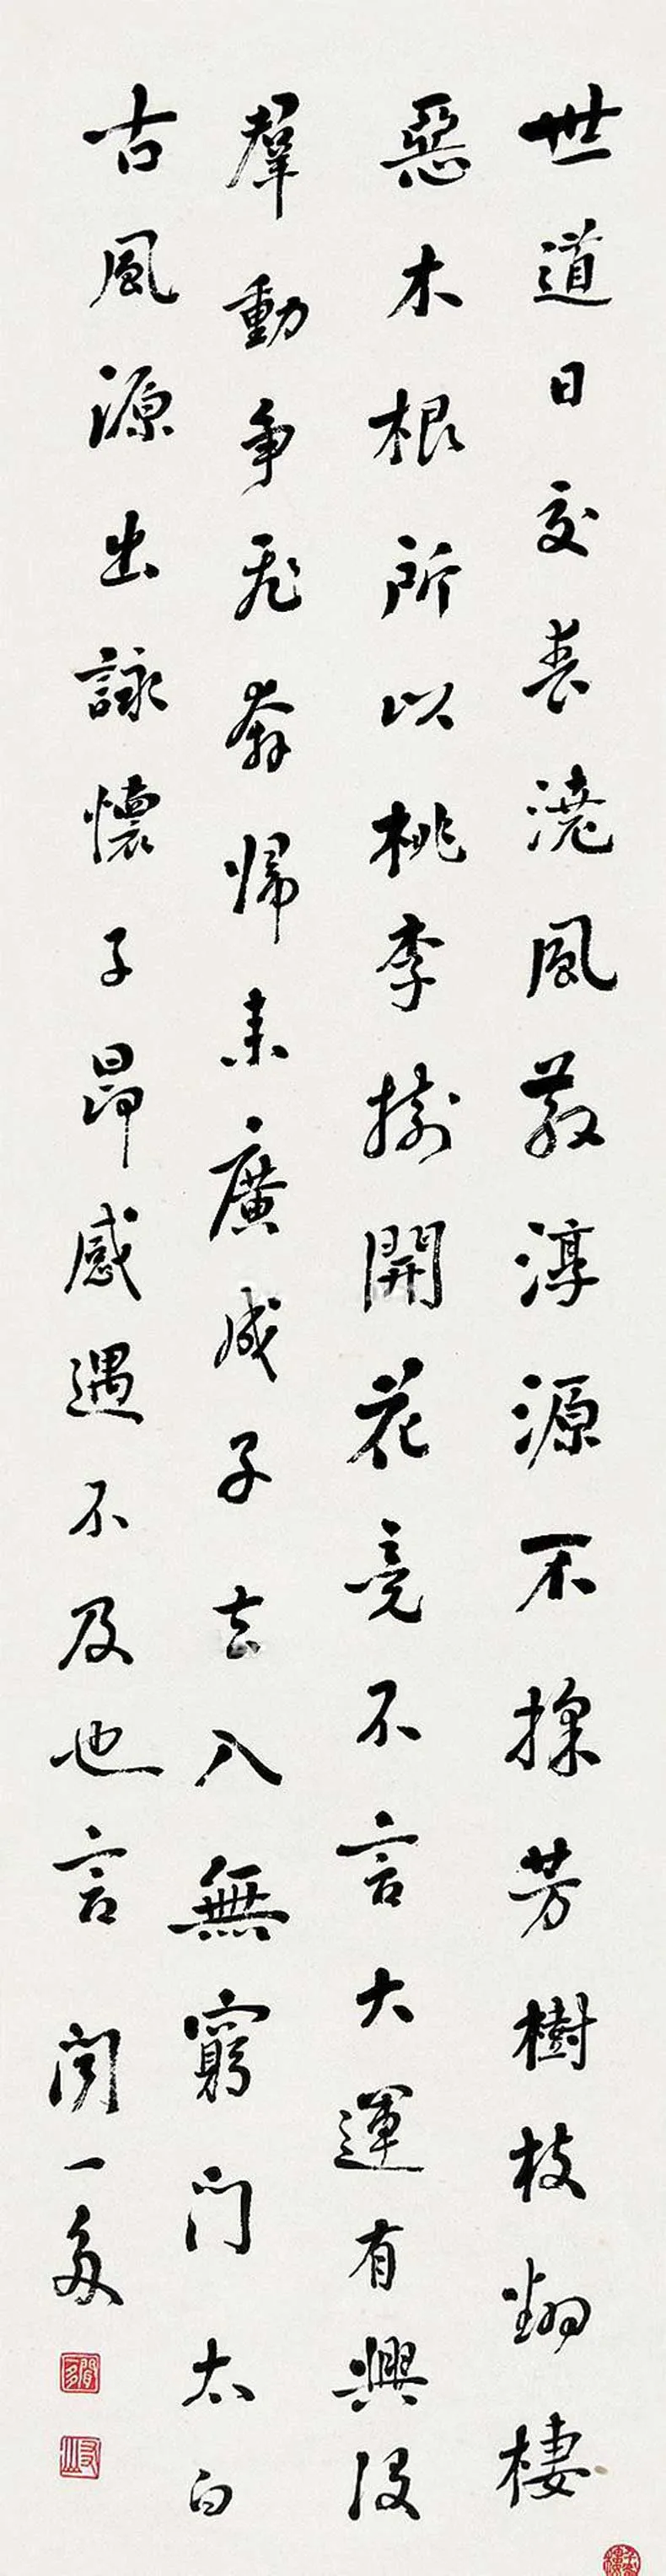 世道日交喪澆風散淳源不採芳樹枝翻棲
惡木根所以桃李樹開花竟不言大運有興没
羣動争飛奔帰来廣成子去入無窮门太白
古風源出詠懷子昂感遇不及也言 聞一多